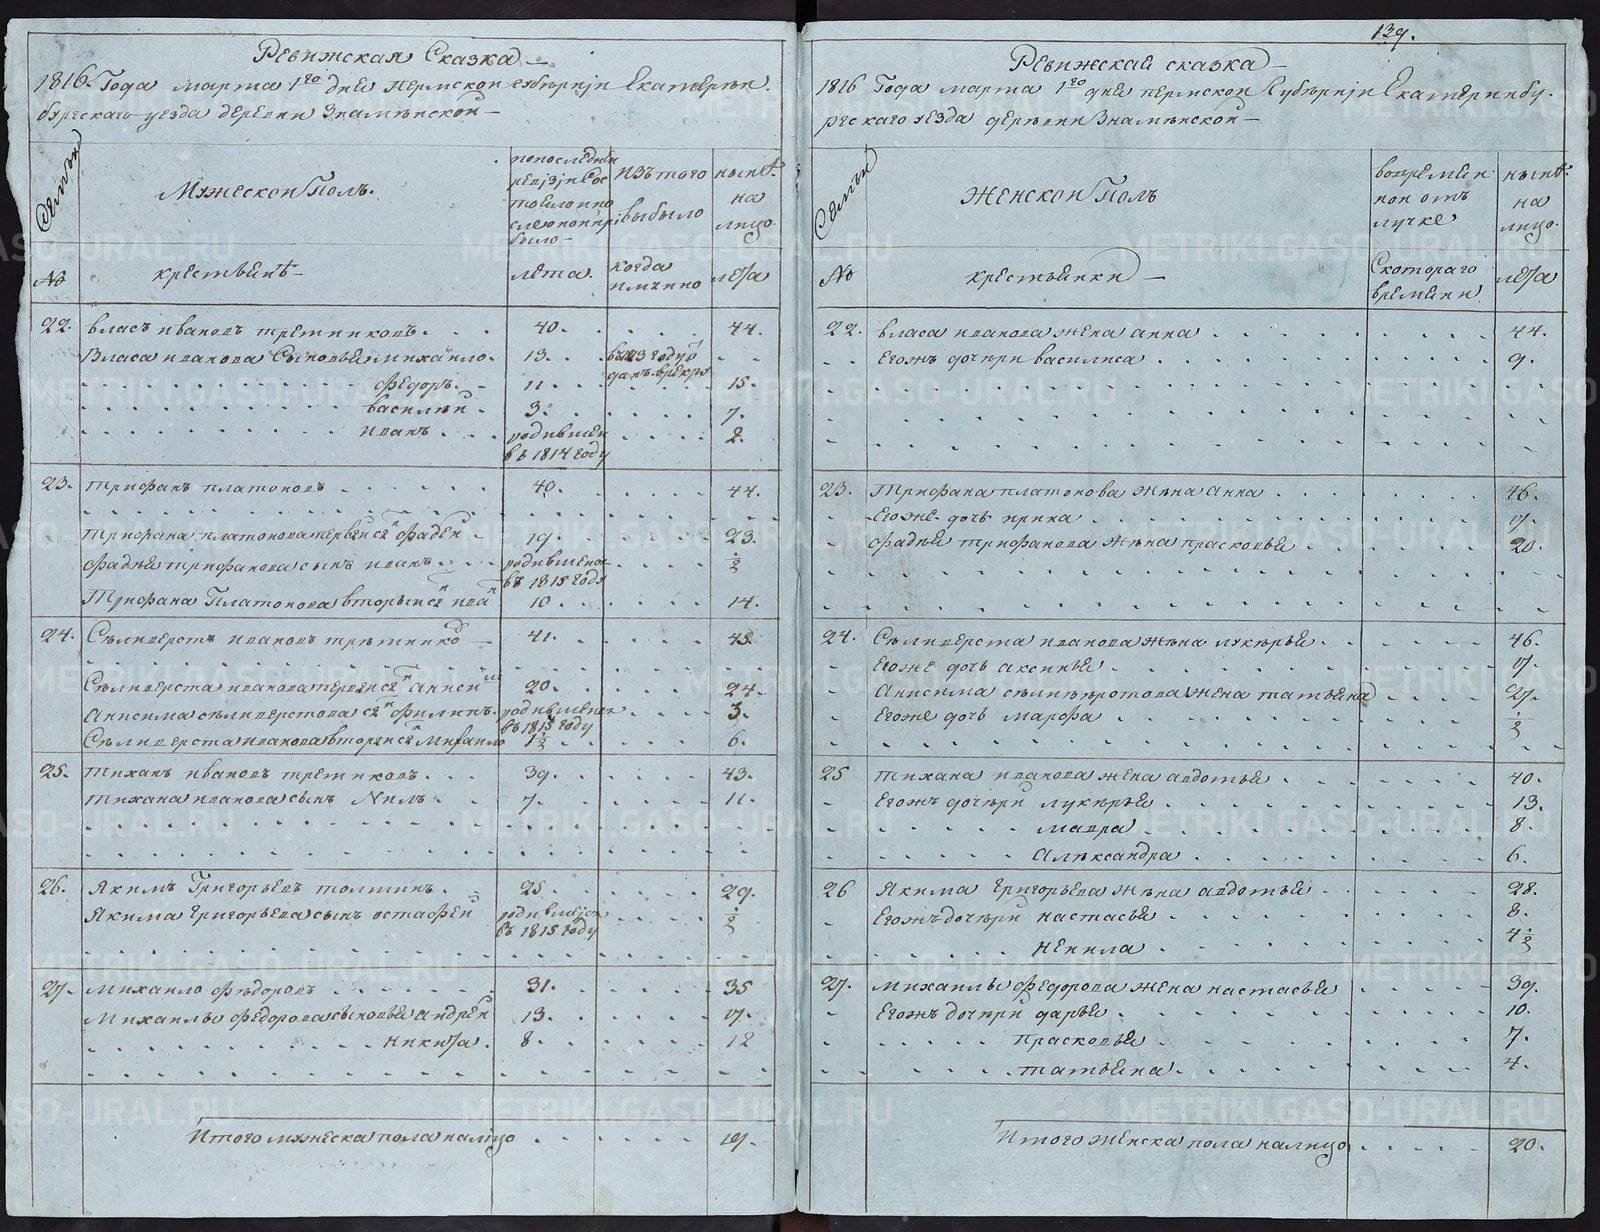 139.
Ревижская Сказка
1816. Года марта 1го дня пермской губернiи Екатерин
бургскаго уезда деревни Знаменской
Семьи
Мужеской Полъ.
попоследней
ревiзiи Сос
тояло ипо
сле онойпри
было
изътого
выбыло
ныне
на
лицо.
№
крестьяне
лета.
когда
имянно
лета
22. власъ ивановъ третниковъ. 40. 44.
Власа иванова Сыновья михайло. 13. в 1813 году
данъ врекру
федоръ. 11. 15.
василей 3. 7.
иванъ родившей 2.
въ 1814 году
23. трифанъ платоновъ 40. 44.
трифана платонова первый сынъ фадей 19. 23.
фадея трифанова сынъ иванъ родившейся 1/2
въ 1815 году
Трифана Платонова вторый сынъ иванъ 10 14.
24. Селиверстъ ивановъ третнико 41. 45.
Селиверста иванова первый сынъ анисим 20. 24.
Анисима селиверстова сынъ филипъ. родившейся 3.
въ 1813 году
Селиверста иванова вторый сынъ Михайло 1 1/2 6.
25. тиханъ ивановъ третниковъ. 39. 43.
тихана иванова сынъ Нилъ 7. 11.
26. Якимъ Григорьевъ толшинъ. 25 29.
Якима григорьева сынъ остафей родившейся 1/2
въ 1815 году
27. михайло федоровъ 31. 35
Михайлы федорова сыновья андрей 13. 17.
никита. 8. 12
Итого мужеска пола налицо 17.
Ревижская сказка
1816 Года марта 1го дня пермской Губернiи Екатеринбу
ргскаго уезда деревни Знаменской
Семьи
Женской Полъ
вовремен
ной отъ
лучке
ныне
на
лицо.
№
крестьянки
Скотораго
времяни
лета
22. власа иванова жена анна 44.
Егожъ дочери василиса 9.
23. Трифана платонова жена анна 46.
Егоже дочь ирина 17.
фадея трифанова жена прасковья 20.
24. Селиверста иванова жена лукерья 46.
Егоже дочь аксинья 17.
Анисима селиверстова жена татьяна 27.
Егоже дочь марфа 1/2
25 тихана иванова жена авдотья 40.
Егожъ дочери лукерья 13.
мавра 8.
Александра 6.
26 Якима григорьева жена авдотья 28.
Егожъ дочери настасья 8.
ненила 4 1/2
27. михайлы федорова жена настасья 39.
Егожъ дочери дарья 10.
прасковья 7.
татьяна 4.
Итого женска пола налицо 20.
METRIKI.GASO-URAL.RU